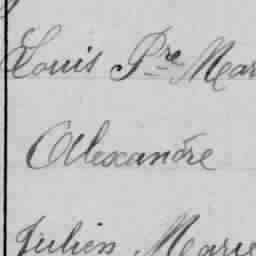 Louis Pre Mar
Alexandre
Julien Marie